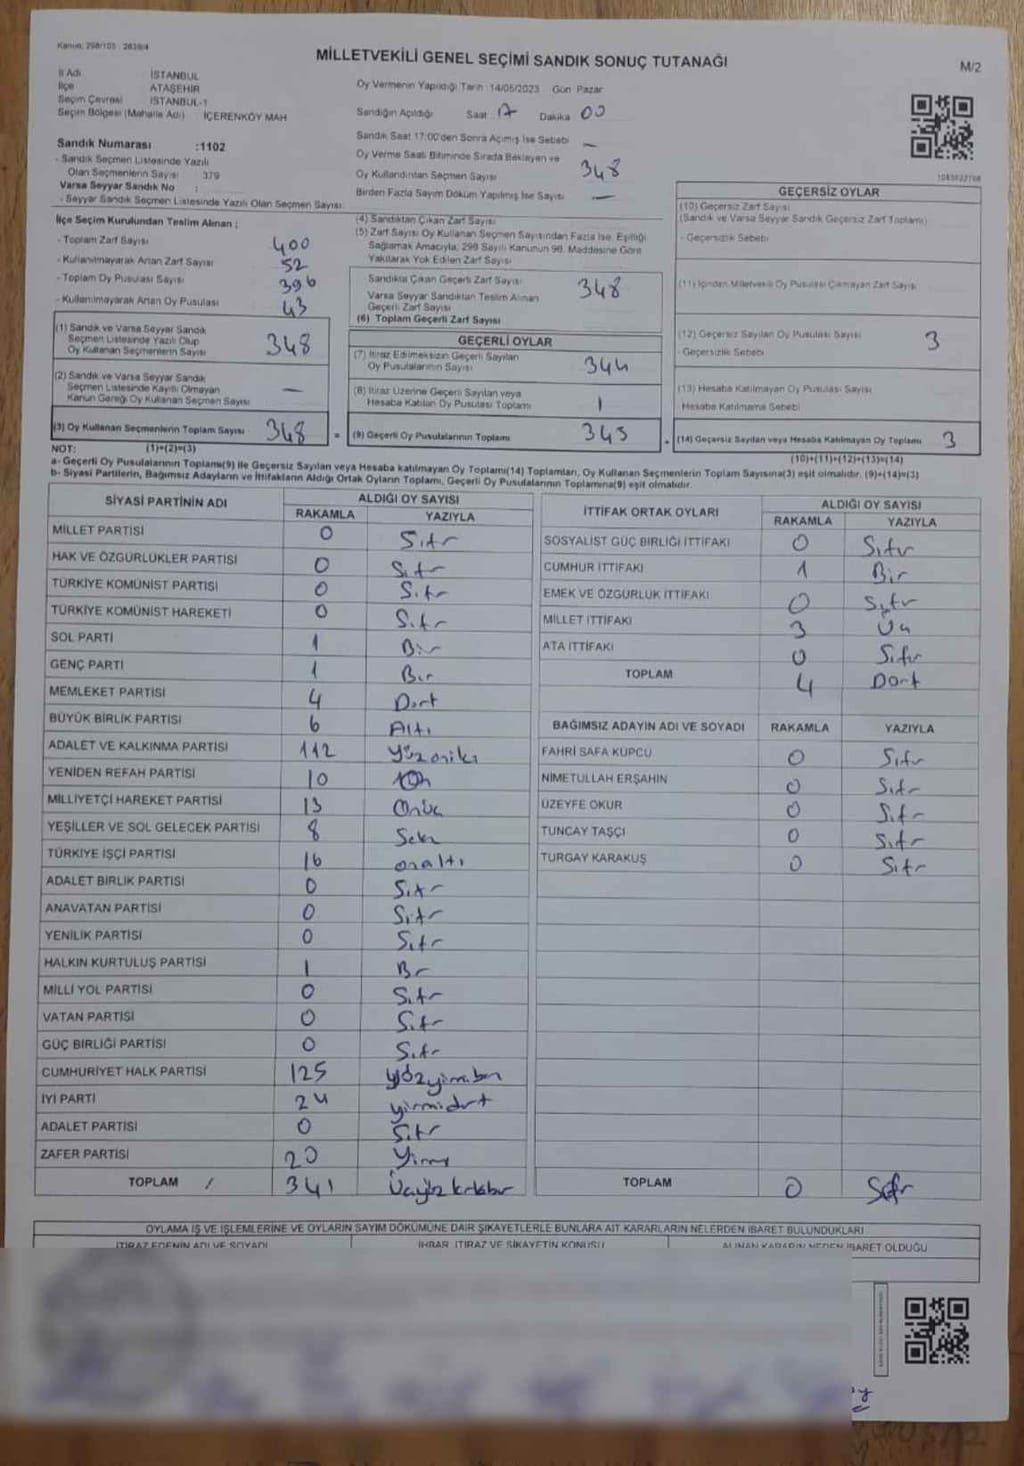 Kanun: 298/105 - 2839/4
MİLLETVEKİLİ GENEL SEÇİMİ SANDIK SONUÇ TUTANAĞI
M/2
İl Adı İSTANBUL
İlçe ATAŞEHİR
Seçim Çevresi İSTANBUL-1
Seçim Bölgesi (Mahalle Adı) İÇERENKÖY MAH
Sandık Numarası :1102
- Sandık Seçmen Listesinde Yazılı
Olan Seçmenlerin Sayısı 379
Varsa Seyyar Sandık No :
- Seyyar Sandık Seçmen Listesinde Yazılı Olan Seçmen Sayısı:
Oy Vermenin Yapıldığı Tarih :14/05/2023 Gün Pazar
Sandığın Açıldığı Saat 17 Dakika 00
Sandık Saat 17:00'den Sonra Açılmış İse Sebebi —
Oy Verme Saati Bitiminde Sırada Bekleyen ve
Oy Kullandırılan Seçmen Sayısı 348
Birden Fazla Sayım Döküm Yapılmış İse Sayısı —
İlçe Seçim Kurulundan Teslim Alınan ;
- Toplam Zarf Sayısı 400
- Kullanılmayarak Artan Zarf Sayısı 52
- Toplam Oy Pusulası Sayısı 396
- Kullanılmayarak Artan Oy Pusulası 43
(1) Sandık ve Varsa Seyyar Sandık
Seçmen Listesinde Yazılı Olup
Oy Kullanan Seçmenlerin Sayısı 348
(2) Sandık ve Varsa Seyyar Sandık
Seçmen Listesinde Kayıtlı Olmayan
Kanun Gereği Oy Kullanan Seçmen Sayısı —
(3) Oy Kullanan Seçmenlerin Toplam Sayısı 348 =
(1)+(2)=(3)
(4) Sandıktan Çıkan Zarf Sayısı
(5) Zarf Sayısı Oy Kullanan Seçmen Sayısından Fazla İse, Eşitliği
Sağlamak Amacıyla; 298 Sayılı Kanunun 98. Maddesine Göre
Yakılarak Yok Edilen Zarf Sayısı
Sandıkta Çıkan Geçerli Zarf Sayısı 348
Varsa Seyyar Sandıktan Teslim Alınan
Geçerli Zarf Sayısı
(6) Toplam Geçerli Zarf Sayısı
GEÇERLİ OYLAR
(7) İtiraz Edilmeksizin Geçerli Sayılan
Oy Pusulalarının Sayısı 344
(8) İtiraz Üzerine Geçerli Sayılan veya
Hesaba Katılan Oy Pusulası Toplamı 1
(9) Geçerli Oy Pusulalarının Toplamı 345
1083022708
GEÇERSİZ OYLAR
(10) Geçersiz Zarf Sayısı
(Sandık ve Varsa Seyyar Sandık Geçersiz Zarf Toplamı)
- Geçersizlik Sebebi
(11) İçinden Milletvekili Oy Pusulası Çıkmayan Zarf Sayısı
(12) Geçersiz Sayılan Oy Pusulası Sayısı 3
- Geçersizlik Sebebi
(13) Hesaba Katılmayan Oy Pusulası Sayısı
- Hesaba Katılmama Sebebi
(14) Geçersiz Sayılan veya Hesaba Katılmayan Oy Toplamı 3
(10)+(11)+(12)+(13)=(14)
NOT:
a- Geçerli Oy Pusulalarının Toplamı(9) ile Geçersiz Sayılan veya Hesaba katılmayan Oy Toplamı(14) Toplamları, Oy Kullanan Seçmenlerin Toplam Sayısına(3) eşit olmalıdır. (9)+(14)=(3)
b- Siyasi Partilerin, Bağımsız Adayların ve İttifakların Aldığı Ortak Oyların Toplamı, Geçerli Oy Pusulalarının Toplamına(9) eşit olmalıdır.
SİYASİ PARTİNİN ADI ALDIĞI OY SAYISI
RAKAMLA YAZIYLA
MİLLET PARTİSİ 0 Sıfır
HAK VE ÖZGÜRLÜKLER PARTİSİ 0 Sıfır
TÜRKİYE KOMÜNİST PARTİSİ 0 Sıfır
TÜRKİYE KOMÜNİST HAREKETİ 0 Sıfır
SOL PARTİ 1 Bir
GENÇ PARTİ 1 Bir
MEMLEKET PARTİSİ 4 Dört
BÜYÜK BİRLİK PARTİSİ 6 Altı
ADALET VE KALKINMA PARTİSİ 112 Yüzoniki
YENİDEN REFAH PARTİSİ 10 On
MİLLİYETÇİ HAREKET PARTİSİ 13 Onüç
YEŞİLLER VE SOL GELECEK PARTİSİ 8 Sekiz
TÜRKİYE İŞÇİ PARTİSİ 16 onaltı
ADALET BİRLİK PARTİSİ 0 Sıfır
ANAVATAN PARTİSİ 0 Sıfır
YENİLİK PARTİSİ 0 Sıfır
HALKIN KURTULUŞ PARTİSİ 1 Bir
MİLLİ YOL PARTİSİ 0 Sıfır
VATAN PARTİSİ 0 Sıfır
GÜÇ BİRLİĞİ PARTİSİ 0 Sıfır
CUMHURİYET HALK PARTİSİ 125 yüzyirmibeş
İYİ PARTİ 24 yirmidört
ADALET PARTİSİ 0 Sıfır
ZAFER PARTİSİ 20 Yirmi
TOPLAM / 341 Üçyüzkırkbir
İTTİFAK ORTAK OYLARI ALDIĞI OY SAYISI
RAKAMLA YAZIYLA
SOSYALİST GÜÇ BİRLİĞİ İTTİFAKI 0 Sıfır
CUMHUR İTTİFAKI 1 Bir
EMEK VE ÖZGÜRLÜK İTTİFAKI 0 Sıfır
MİLLET İTTİFAKI 3 Üç
ATA İTTİFAKI 0 Sıfır
TOPLAM 4 Dört
BAĞIMSIZ ADAYIN ADI VE SOYADI RAKAMLA YAZIYLA
FAHRİ SAFA KÜPCÜ 0 Sıfır
NİMETULLAH ERŞAHİN 0 Sıfır
ÜZEYFE OKUR 0 Sıfır
TUNCAY TAŞÇI 0 Sıfır
TURGAY KARAKUŞ 0 Sıfır
TOPLAM 0 Sıfır
OYLAMA İŞ VE İŞLEMLERİNE VE OYLARIN SAYIM DÖKÜMÜNE DAİR ŞİKAYETLERLE BUNLARA AİT KARARLARIN NELERDEN İBARET BULUNDUKLARI
İTİRAZ EDENİN ADI VE SOYADI İHBAR, İTİRAZ VE ŞİKAYETİN KONUSU ALINAN KARARIN NEDEN İBARET OLDUĞU